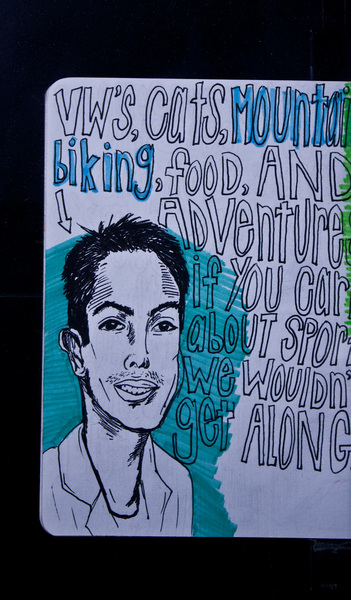 VW's, cats, MOUNTAI
biking, food, AND
ADVENTURE
if YOU CAR
about SPOR
WE WOULDN'
get ALONG